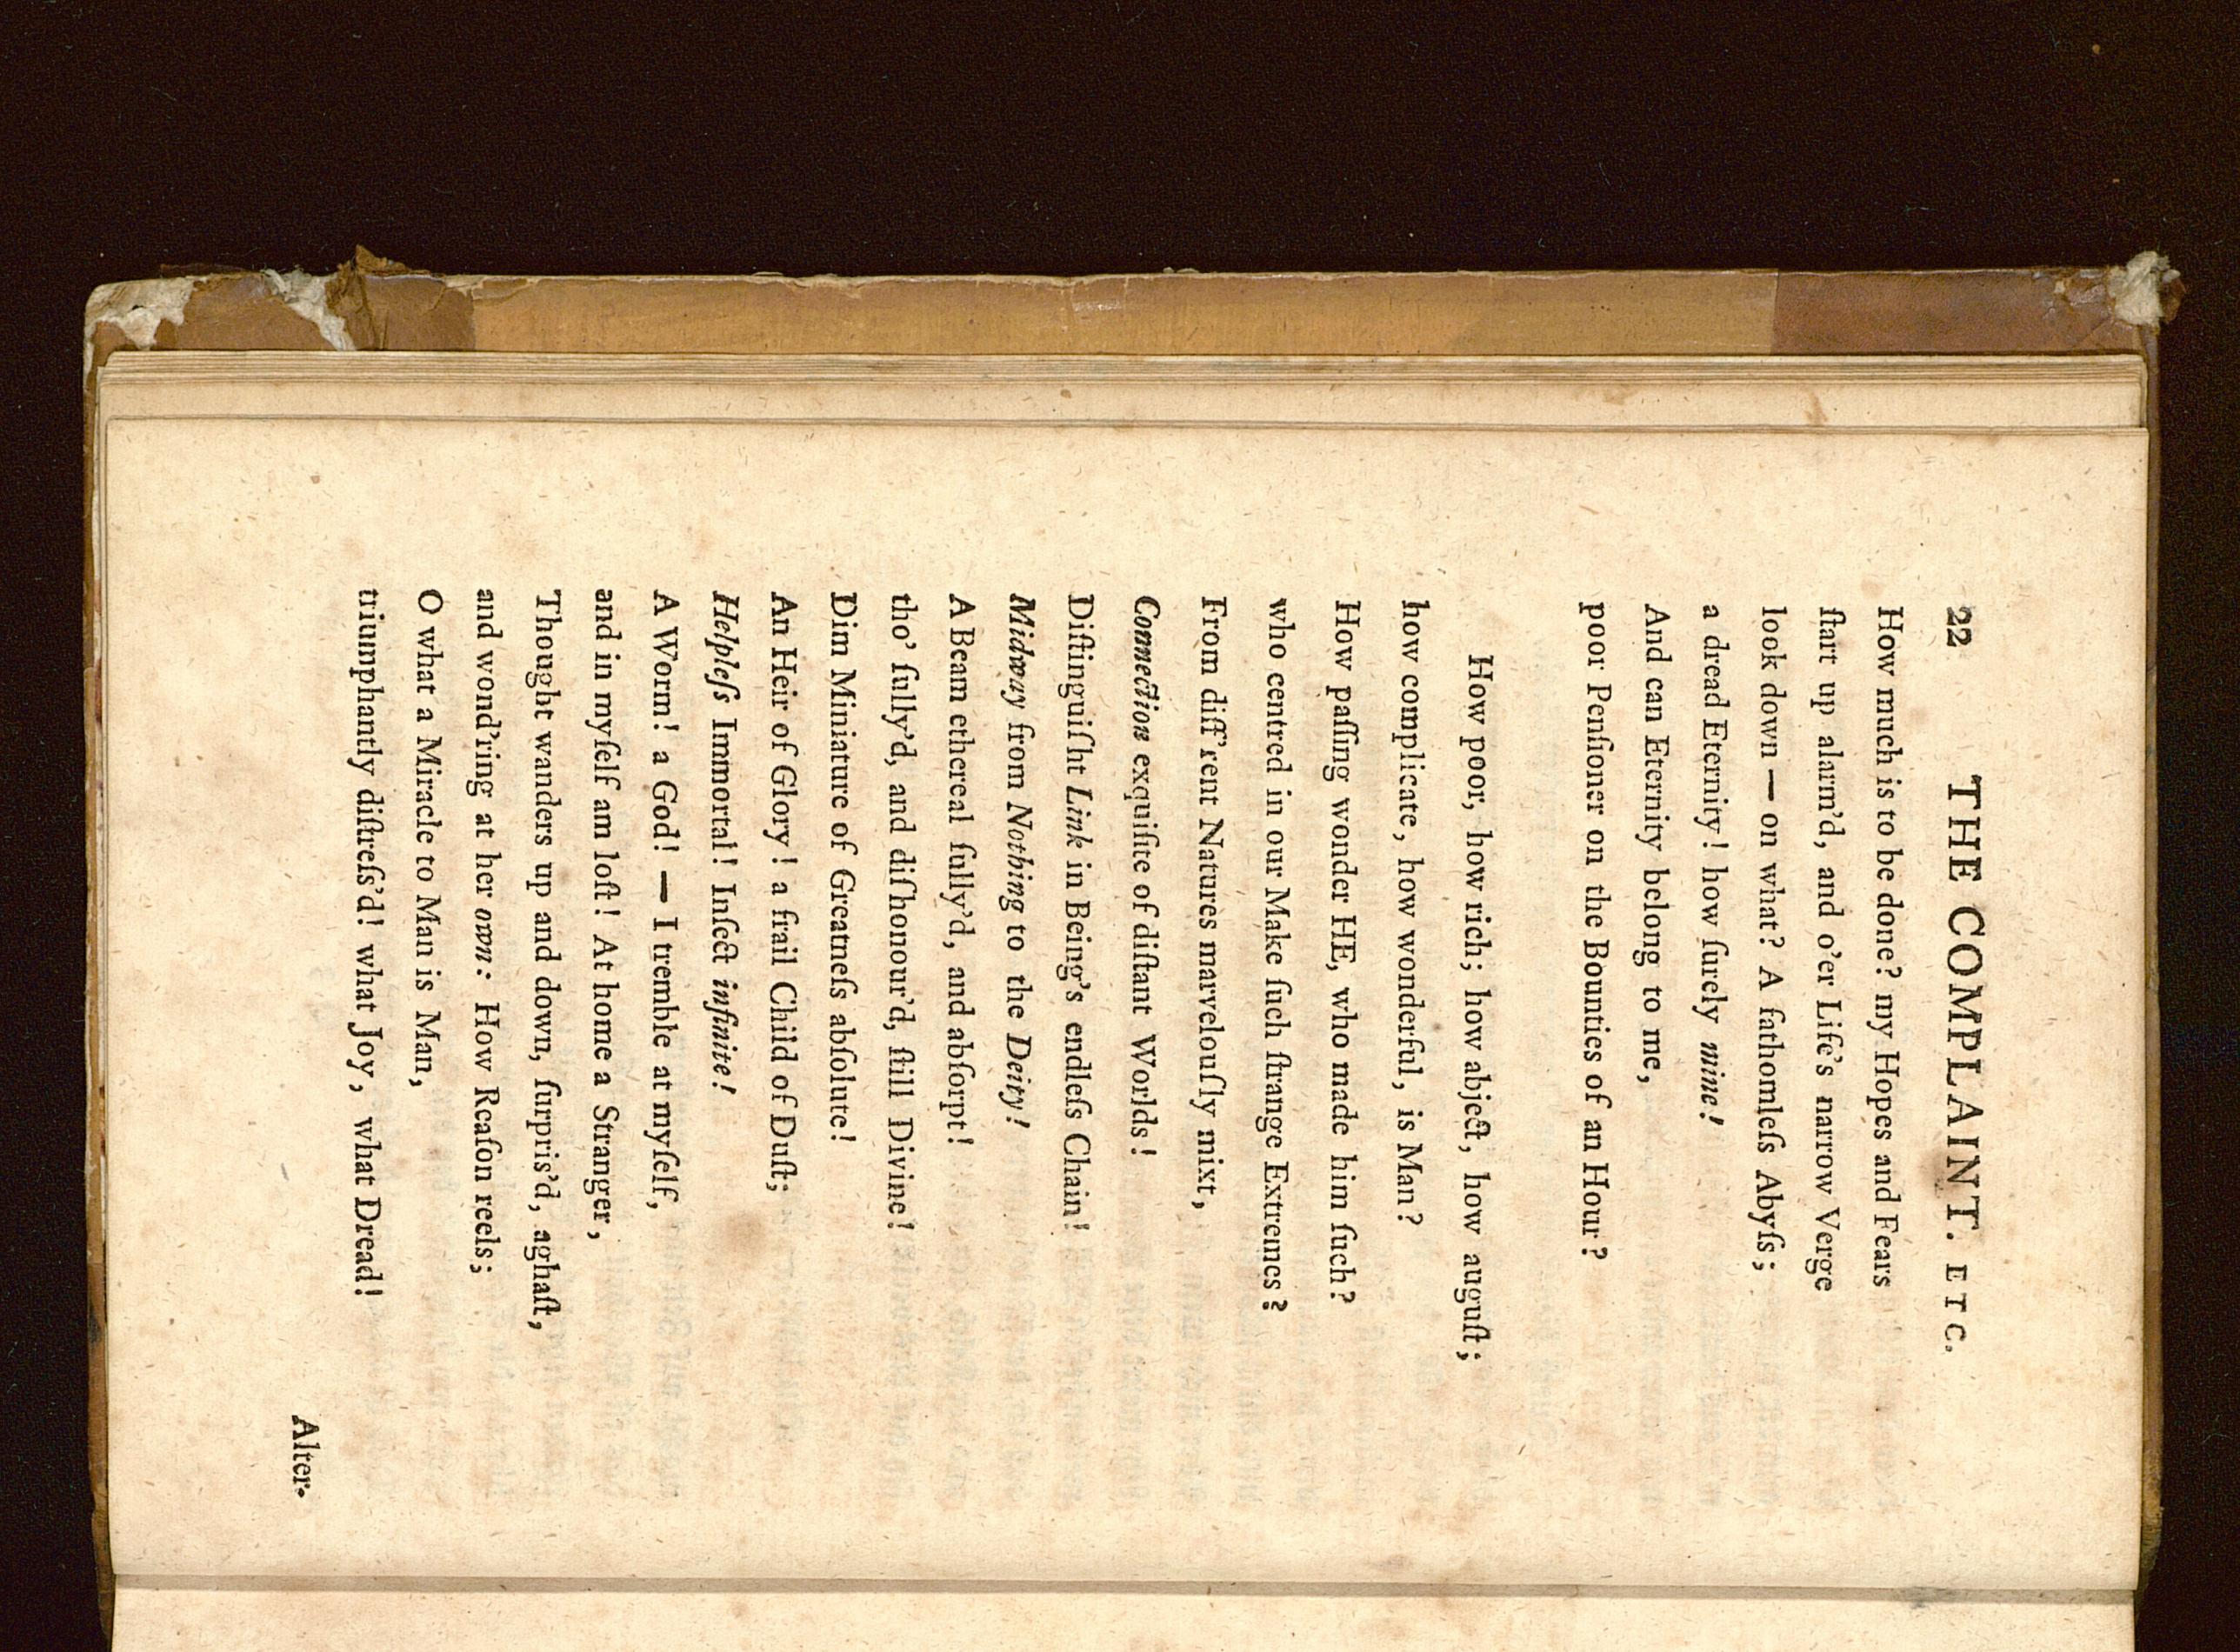 22 THE COMPLAINT. ETC.
How much is to be done? my Hopes and Fears
ſtart up alarm'd, and o'er Life's narrow Verge
look down — on what? A fathomleſs Abyſs;
a dread Eternity! how ſurely mine!
And can Eternity belong to me,
poor Penſioner on the Bounties of an Hour?
How poor, how rich; how abject, how auguſt;
how complicate, how wonderful, is Man?
How paſſing wonder HE, who made him ſuch?
who centred in our Make ſuch ſtrange Extremes?
From diff'rent Natures marvelouſly mixt,
Connection exquiſite of diſtant Worlds!
Diſtinguiſht Link in Being's endleſs Chain!
Midway from Nothing to the Deity!
A Beam ethereal ſully'd, and abſorpt!
tho' ſully'd, and diſhonour'd, ſtill Divine!
Dim Miniature of Greatneſs abſolute!
An Heir of Glory! a frail Child of Duſt;
Helpleſs Immortal! Inſect infinite!
A Worm! a God! — I tremble at myſelf,
and in myſelf am loſt! At home a Stranger,
Thought wanders up and down, ſurpris'd, aghaſt,
and wond'ring at her own: How Reaſon reels;
O what a Miracle to Man is Man,
triumphantly diſtreſs'd! what Joy, what Dread!
Alter.